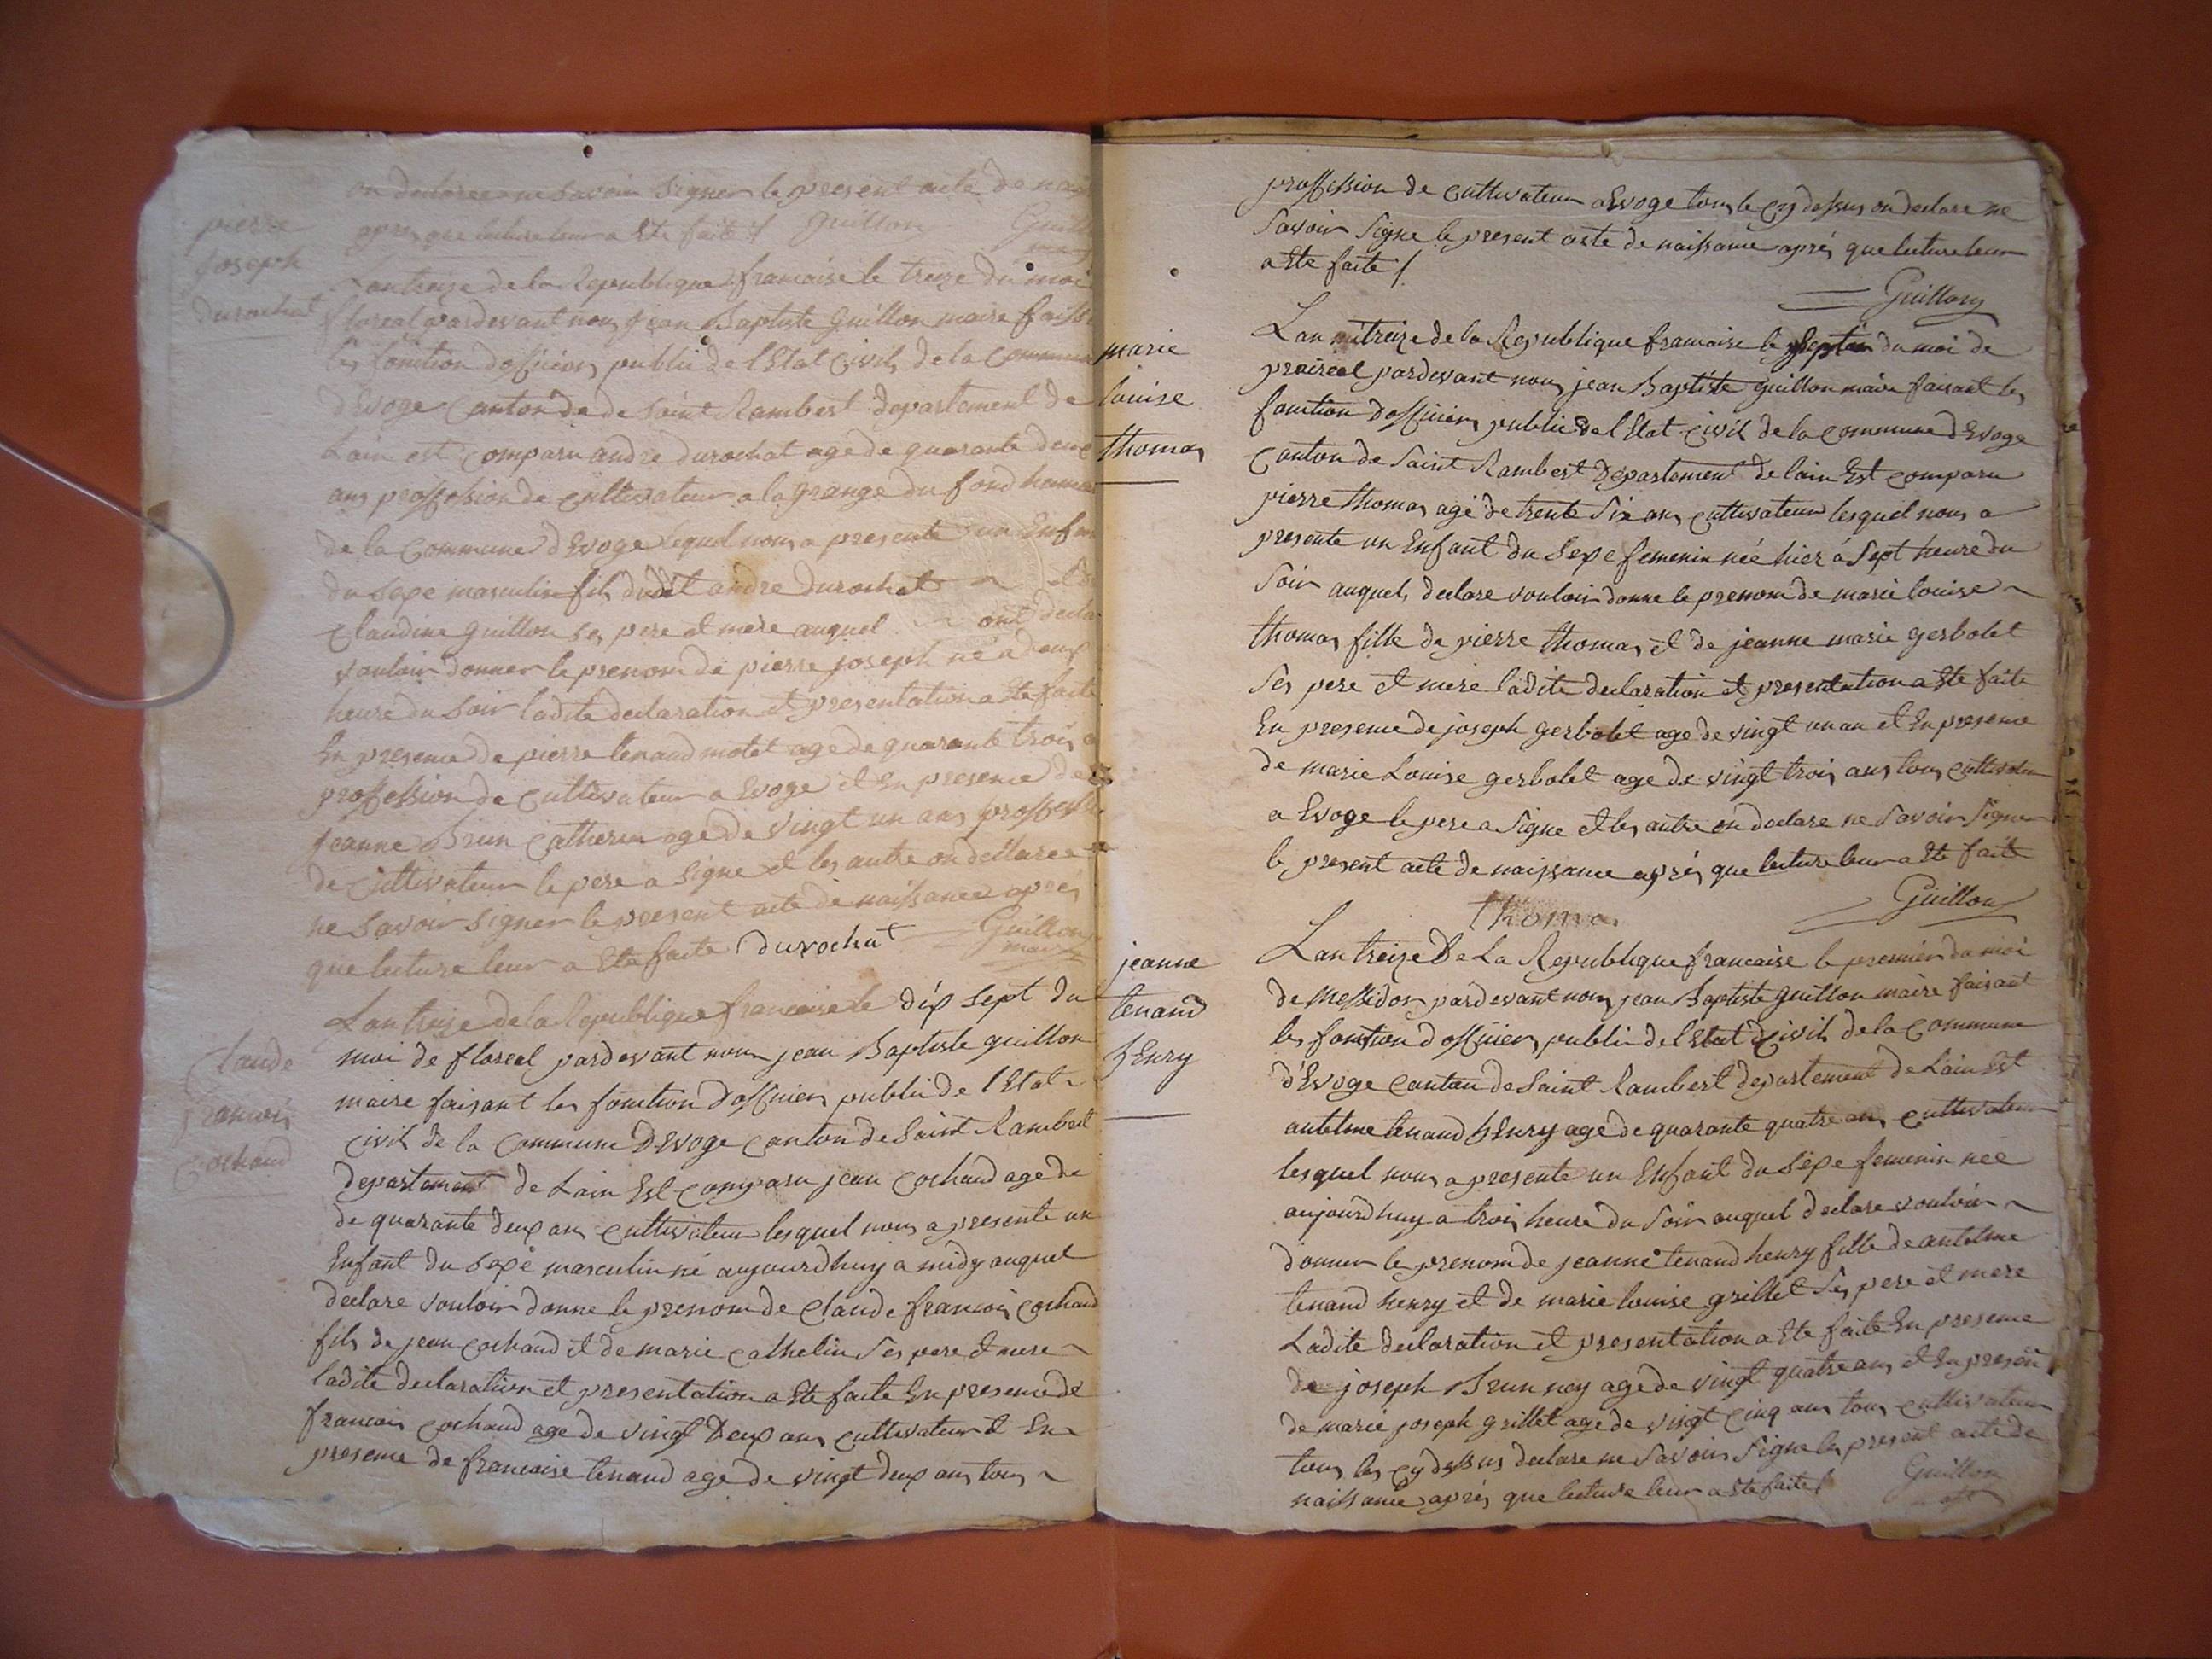 on declaree ne savoir signer le present acte de nai
apres que lecture leur a Ete faite Guillon Guill
pierre
joseph
durochat
Lan treize de la Republique francaise le treize du moi
floreal pardevant nous jean Baptiste Guillon maire faisa
les fonction dofficiers public de l'Etat Civil de la Commune
d'Evoge Canton de de Saint Rambert departement de
Lain est comparu andre durochat age de quarante deux
ans proffession de cultivateur a la grange du fond hamau
de la Commune d'Evoge lequel nous a presente un Enfan
du sexe masculin fils dudit andre durochat
Claudine guillon ses pere et mere auquel ont decla
vouloir donner le prenom de pierre joseph né a deux
heure du soir ladite declaration et presentation a Ete faite
En presence de pierre tenand motet age de quarante trois a
proffession de cultivateur a Evoge et En presence de
jeanne Brun Catherin age de vingt un ans proffession
de cultivateur le pere a signe et les autre on declaree
ne savoir signer le present acte de naissance apres
que lecture leur a Ete faite durochat Guillon
maire
Claude
francois
Cochand
Lan treize de la Republique francaise le dix sept du
moi de floreal pardevant nous jean Baptiste guillon
maire faisant les fonction dofficiers public de l'Etat
civil de la Commune D'Evoge canton de Saint Rambert
departement de Lain Est Comparu jean Cochand age de
de quarante deux ans cultivateur lesquel nous a presente un
Enfant du Sexe masculin né aujourdhuy a midy auquel
declare vouloir donne le prenom de Claude francois Cochand
fils de jean Cochand et de marie cathelin Ses pere et mere
ladite declaration et presentation a Ete faite En presence de
francois Cochand age de vingt Deux ans cultivateur et En
presence de francoise tenand age de vingt deux ans tous
proffession de cultivateur a Evoge tous le cy dessus on declare ne
Savoir Signe le present acte de naissance aprés que lecture leur
a Ete faite
Guillon
marie
louise
thomas
Lan treize de la Republique francaise le Septier du moi de
praireal pardevant nous jean Baptiste guillon maire faisant les
fonction dofficiers public de l'Etat civil de la commune d'Evoge
Canton de Saint Rambert Departement de lain Est comparu
pierre thomas agé de trente Six ans cultivateur lesquel nous a
presente un Enfant du Sexe femenin née hier a Sept heure du
Soir auquel declare vouloir donne le prenom de marie louise
thomas fille de pierre thomas et de jeanne marie gerbolet
Ses pere et mere ladite declaration et presentation a Ete faite
En presence de joseph gerbolet age de vingt un an et En presence
de marie Louise gerbolet age de vingt trois ans tous cultivateur
a Evoge le pere a Signe et les autre on declare ne Savoir Signer
le present acte de naissance aprés que lecture leur a Ete faite
thomas Guillon
jeanne
tenand
hEnry
Lan treize De La Republique francaise le premier du moi
de Messidor pardevant nous jean Baptiste guillon maire faisant
les fonction dofficiers public de l'Etat Civil de la Commune
d'Evoge Canton de Saint Rambert departement de Lain Est
antelme tenand hEnry age de quarante quatre ans cultivateur
lesquel nous a presente un Enfant du Sexe femenin née
aujourdhuy a trois heure du Soir auquel declare vouloir
donner le prenom de jeanne tenand henry fille de antelme
tenand henry et de marie louise grillet Ses pere et mere
Ladite declaration et presentation a Ete faite En presence
de joseph Brun ney age de vingt quatre ans et En presen
de marie joseph grillet age de vingt cinq ans tous cultivateur
tous les cy dessus declare ne Savoir Signe le present acte de
naissance aprés que lecture leur a Ete faite Guillon